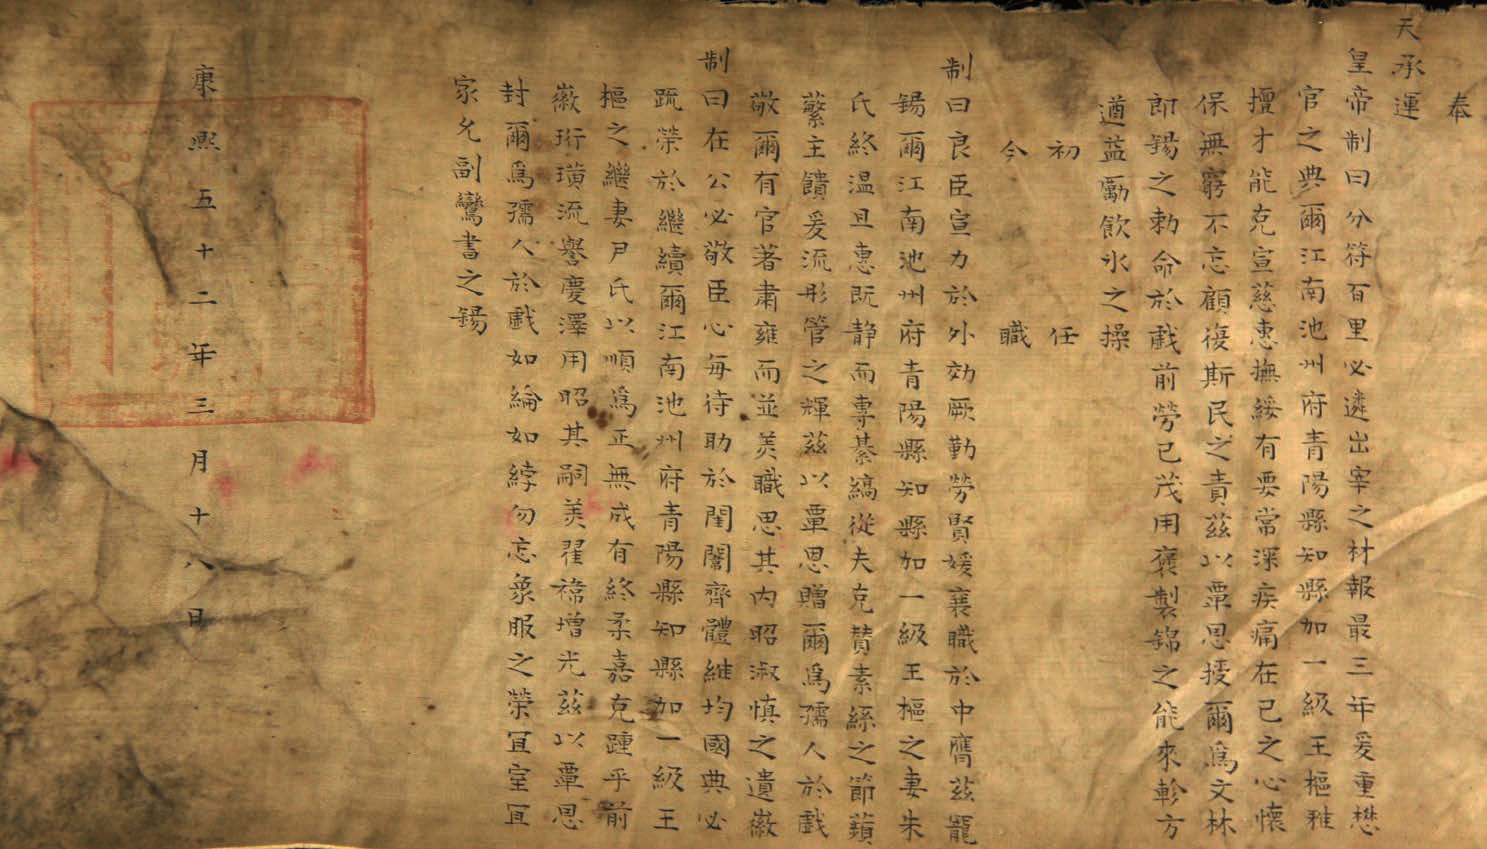 奉
天承運
皇帝制曰分符百里必遴出宰之材報最三年爰重懋
官之典爾江南池州府青陽縣知縣加一級王樞雅
擅才能克宣慈惠撫綏有要常深疾痛在己之心懷
保無窮不忘顧復斯民之責茲以覃恩授爾爲文林
郎錫之勅命於戲前勞已茂用褒製錦之能來軫方
遒益勵飲冰之操
初任
今職
制曰良臣宣力於外効厥勤勞賢媛襄職於中膺茲寵
錫爾江南池州府青陽縣知縣加一級王樞之妻朱
氏終温且惠既静而專綦縞從夫克賛素絲之節蘋
蘩主饋爰流彤管之輝茲以覃恩贈爾爲孺人於戲
敬爾有官著肅雍而並美職思其內昭淑慎之遺徽
制曰在公必敬臣心每待助於閨闈齊體維均國典必
疏榮於繼續爾江南池州府青陽縣知縣加一級王
樞之繼妻尹氏以順爲正無成有終柔嘉克踵乎前
徽珩璜流譽慶澤用昭其嗣美翟褘增光茲以覃恩
封爾爲孺人於戲如綸如綍勿忘象服之榮宜室宜
家允副鸞書之錫
康熙五十二年三月十八日